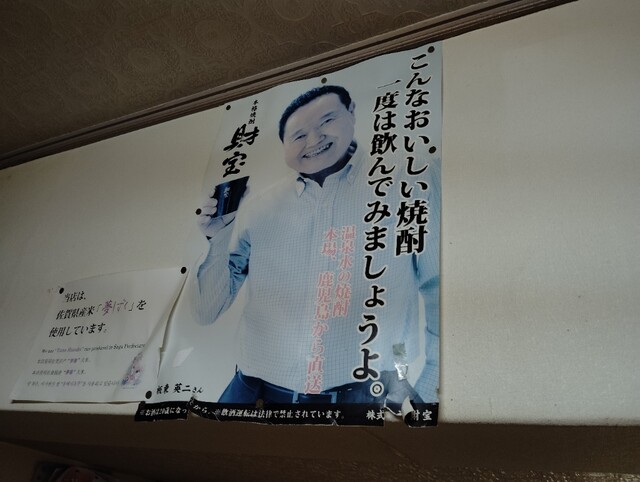 こんなおいしい焼酎
一度は飲んでみましょうよ。
本格焼酎
財宝
温泉水の焼酎
本場、鹿児島から直送
板東 英二さん
※お酒は20歳になってから。※飲酒運転は法律で禁止されています。
株式
財宝
当店は、
佐賀県産米「夢しずく」を
使用しています。